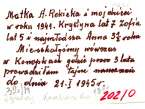 Matka H. Rokicka i moje dzieci
w roku 1941. Krystyna lat 7 Zofia
lat 5 i najmłodsza Anna 3½ roku
Mieszkałyśmy wówczas
w Konopkach gdzie przez 3 lata
prowadziłam Tajne
do dnia 21.I 1945r.
202/0